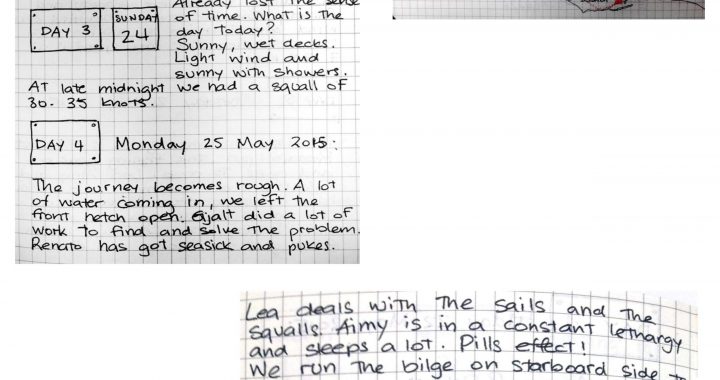 Already lost the sense
DAY 3
SUNDAY
24
of time. What is the
day today?
Sunny, wet decks.
Light wind and
sunny with showers.
At late midnight we had a squall of
30-35 knots.
DAY 4
Monday 25 May 2015:
The journey becomes rough. A lot
of water coming in, we left the
front hetch open. Gjalt did a lot of
work to find and solve the problem.
Renato has got seasick and pukes.
Lea deals with the sails and the
squalls. Aimy is in a constant lethargy
and sleeps a lot. Pills effect!
We run the bilge on starboard side